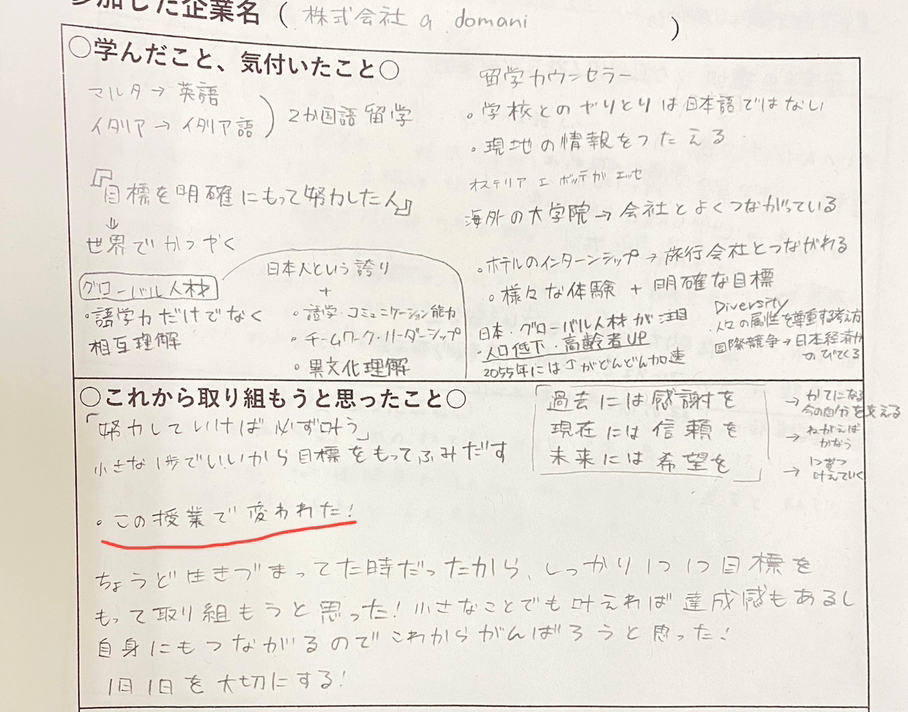 参加した企業名 ( 株式会社 a domani )
○学んだこと、気付いたこと○
マルタ→英語
イタリア→イタリア語
2か国語留学
『目標を明確にもって努力した人』
↓
世界でかつやく
グローバル人材
・語学力だけでなく
相互理解
日本人という誇り
+
・語学・コミュニケーション能力
・チームワーク・リーダーシップ
・異文化理解
留学カウンセラー
・学校とのやりとりは日本語ではない
・現地の情報をつたえる
オステリア エ ボッテガ エッセ
海外の大学院→会社とよくつながっている
・ホテルのインターンシップ→旅行会社とつながれる
・様々な体験 + 明確な目標
日本・グローバル人材が注目
・人口低下・高齢者UP
2055年には がどんどん加速
Diversity
・人の属性を尊重する考え方
国際競争→日本経済が
のびてくる
○これから取り組もうと思ったこと○
「努力していけば必ず叶う」
小さな1歩でいいから目標をもってふみだす
・この授業で変われた!
過去には感謝を
現在には信頼を
未来には希望を
→かてになる
今の自分を支える
→ねがえば
かなう
→1つずつ
叶えていく
ちょうど生きづまってた時だったから、しっかり1つ1つ目標を
もって取り組もうと思った!小さなことでも叶えれば達成感もあるし
自身にもつながるのでこれからがんばろうと思った!
1日1日を大切にする!